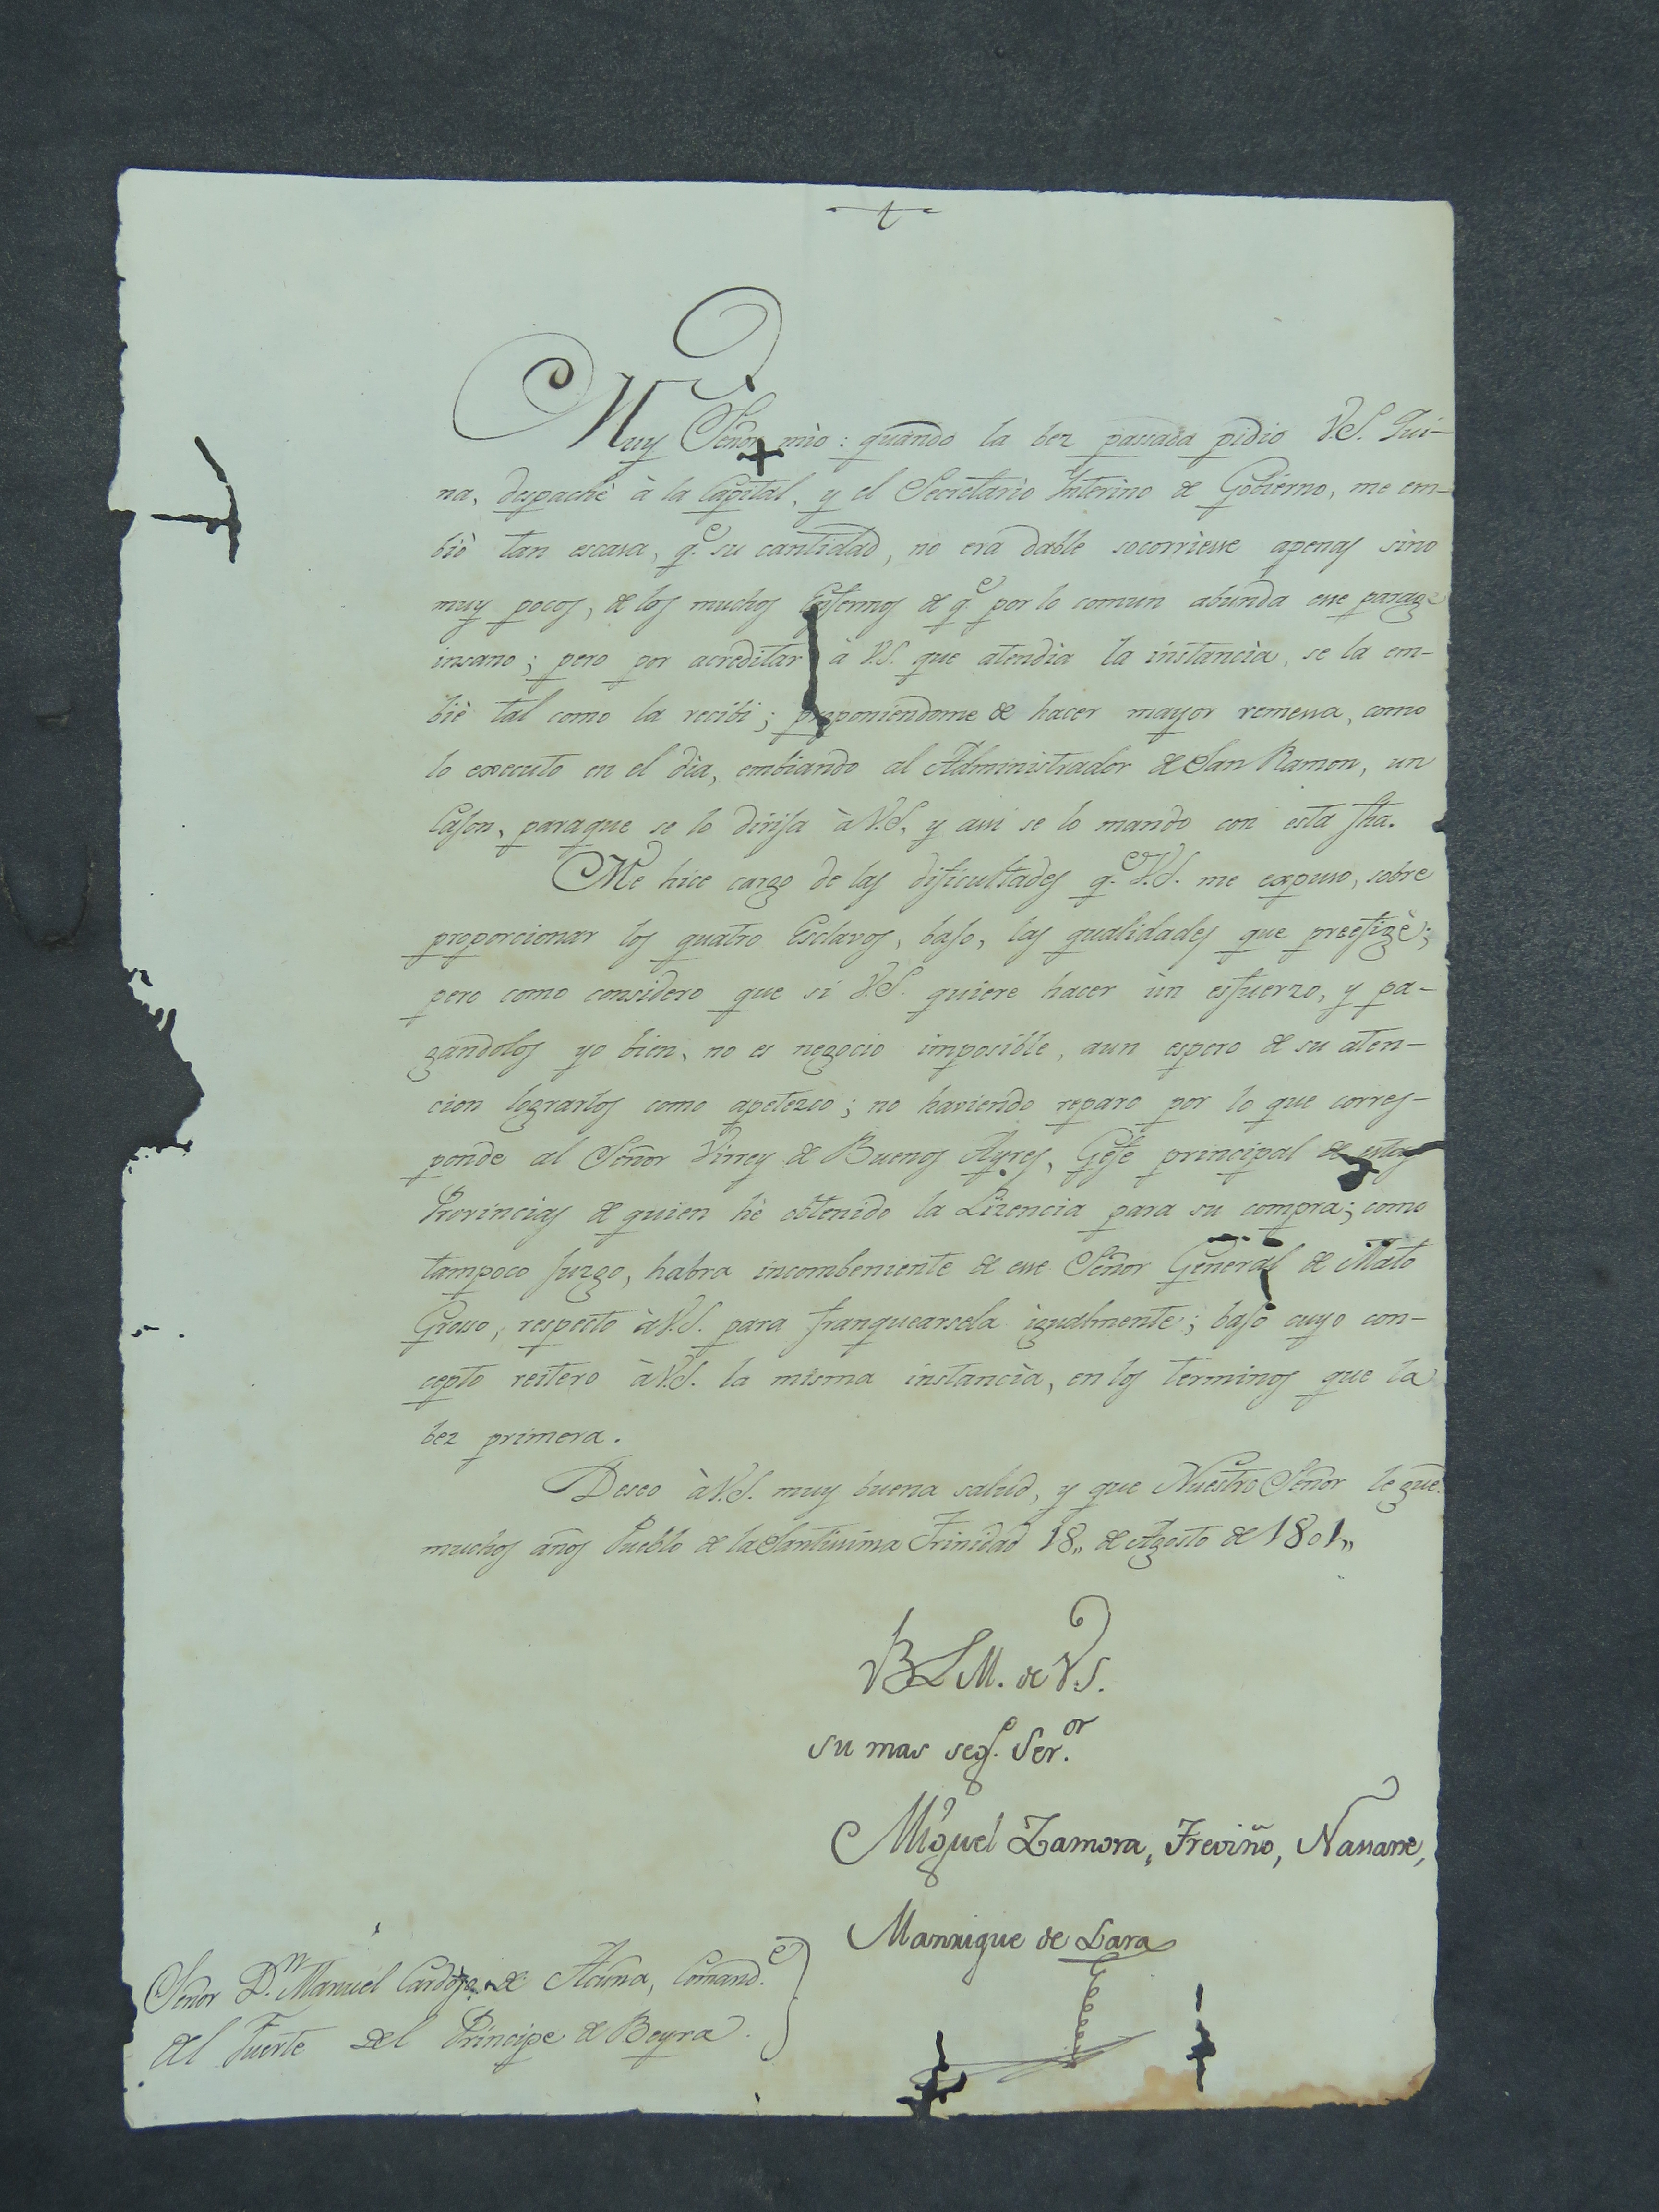 Muy Señor mio: quando la bez passada pidio V.S. Qui-
na, despachè à la Capital, y el Secretario Interino de Govierno, me em-
biò tan escassa, q.e su cantidad, no era dable socorriesse apenas sino
muy pocos, de los muchos Enfermos de q.e por lo comun abunda esse parage
insano; pero por acreditar à V.S. que atendia la instancia, se la em-
biè tal como la recibi; proponiendome de hacer mayor remessa, como
lo executo en el dia, embiando al Administrador de San Ramon, un
Cajon, paraque se lo dirija à V.S. y assi se lo mando con esta fha.
Me hice cargo de las dificultades q.e V.S. me expuso, sobre
proporcionar los quatro Esclavos, bajo, las qualidades que prefigè;
pero como considero que si V.S. quiere hacer ùn esfuerzo, y pa-
gandolos yo bien, no es negocio imposible, aun espero de su aten-
cion lograrlos como apetezco; no haviendo reparo por lo que corres-
ponde al Señor Virrey de Buenos Ayres, Gefe principal de estas
Provincias de quien hè obtenido la Lizencia para su compra; como
tampoco juzgo, habra incombeniente de esse Señor General de Mato
Grosso, respecto à V.S. para franquearsela igualmente; bajo cuyo con-
cepto reitero à V.S. la misma instancia, en los terminos que la
bez primera.
Deseo à V.S. muy buena salud, y que Nuestro Señor le gue.
muchos años Pueblo de la Santissima Trinidad 18,, de Agosto de 1801,,
B L M. de V.S.
su mas seg.o Ser.or
Miguel Zamora, Treviño, Navarre,
Manrique de Lara
Señor D.n Manuel Cardozo de Acuna, Comand.e
del Fuerte del Principe de Beyra.